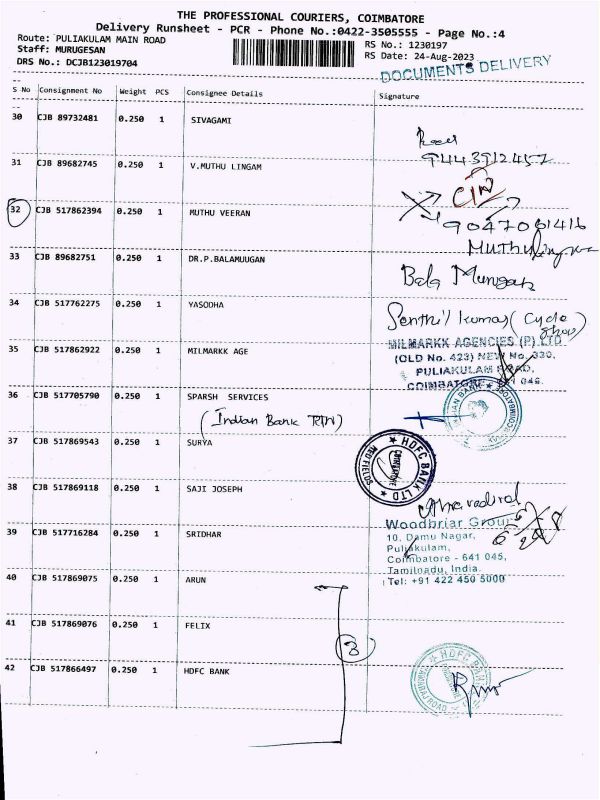 THE PROFESSIONAL COURIERS, COIMBATORE
Delivery Runsheet - PCR - Phone No.:0422-3505555 - Page No.:4
Route: PULIAKULAM MAIN ROAD
Staff: MURUGESAN
DRS No.: DCJB123019704
RS No.: 1230197
RS Date: 24-Aug-2023
DOCUMENTS DELIVERY
S No Consignment No Weight PCS Consignee Details Signature
30 CJB 89732481 0.250 1 SIVAGAMI
9443912457
31 CJB 89682745 0.250 1 V.MUTHU LINGAM
32 CJB 517862394 0.250 1 MUTHU VEERAN
9047061416
33 CJB 89682751 0.250 1 DR.P.BALAMUUGAN
Bala Murugan
34 CJB 517762275 0.250 1 YASODHA
Senthil Kumar (Cycle Shop)
35 CJB 517862922 0.250 1 MILMARKK AGE
MILMARKK AGENCIES (P) LTD
(OLD No. 423) NEW No. 330,
PULIAKULAM ROAD,
COIMBATORE - 641 045.
36 CJB 517705790 0.250 1 SPARSH SERVICES
(Indian Bank
INDIAN BANK
COIMBATORE
37 CJB 517869543 0.250 1 SURYA
HDFC BANK LTD
COIMBATORE
38 CJB 517869118 0.250 1 SAJI JOSEPH
39 CJB 517716284 0.250 1 SRIDHAR
Woodbriar Group
10, Damu Nagar,
Puliakulam,
Coimbatore - 641 045,
Tamilnadu, India.
Tel: +91 422 450 5000
40 CJB 517869075 0.250 1 ARUN
41 CJB 517869076 0.250 1 FELIX
3
42 CJB 517866497 0.250 1 HDFC BANK
HDFC BANK